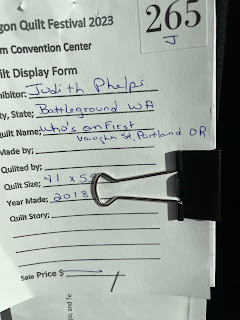 gon Quilt Festival 2023
m Convention Center
ilt Display Form
265
J
hibitor: Judith Phelps
ty, State; Battleground WA
Quilt Name; Who's on First
Vaughn St, Portland OR
Made by;
Quilted by;
Quilt Size; 41 x 5
Year Made; 2013
Quilt Story;
Sale Price $